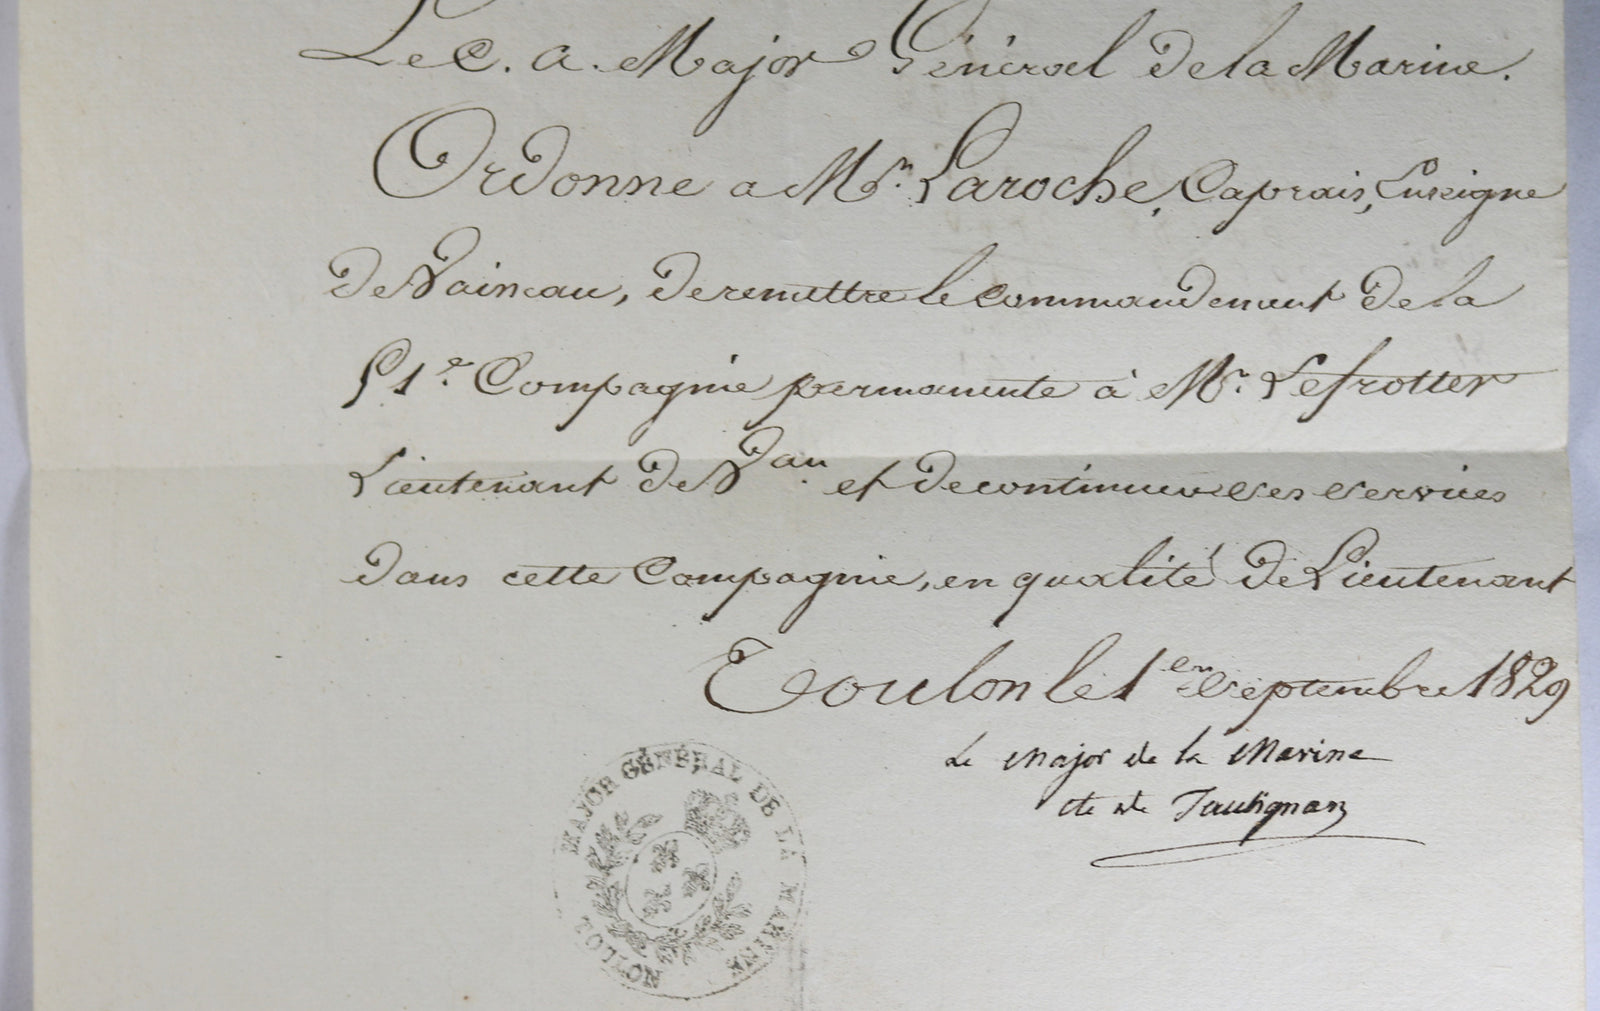 Le C. A. Major Général de la Marine.
Ordonne a Mr. Laroche, Caprais, Enseigne
de Vaisseau, de remettre le commandement de la
51e. Compagnie permanente à Mr. Lefrotter
Lieutenant de Vau. et de continuer ses services
dans cette Compagnie, en qualité de Lieutenant
Toulon le 1er Septembre 1829
Le Major de la Marine
cte de
MAJOR GÉNÉRAL DE LA MARINE
TOULON